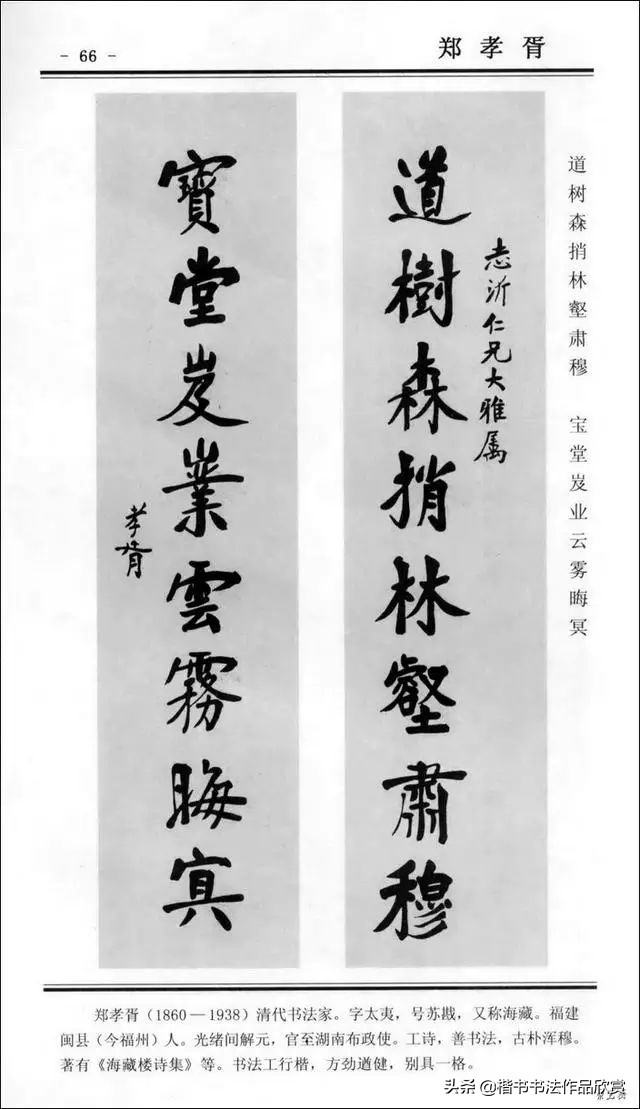 - 66 -
郑孝胥
道树森捎林壑肃穆 宝堂岌业云雾晦冥
道樹森捎林壑肅穆
志沂仁兄大雅属
寶堂岌業雲霧晦冥
孝胥
郑孝胥（1860－1938）清代书法家。字太夷，号苏戡，又称海藏。福建
闽县（今福州）人。光绪间解元，官至湖南布政使。工诗，善书法，古朴浑穆。
著有《海藏楼诗集》等。书法工行楷，方劲遒健，别具一格。
头条@楷书书法作品欣赏